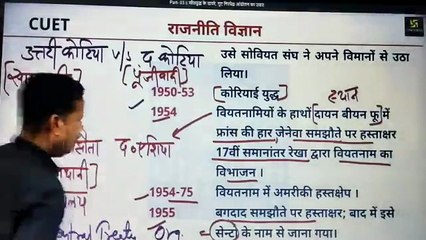 Part- 03। शीतयुद्ध के दायरे, गुट निरपेक्ष आंदोलन का उदय
CUET
राजनीति विज्ञान
उत्तरी कोरिया v/s द. कोरिया
उसे सोवियत संघ ने अपने विमानों से उठा
लिया।
1950-53
कोरियाई युद्ध
स्थान
1954
वियतनामियों के हाथों [दायन बीयन फू] में
फ्रांस की हार, जेनेवा समझौते पर हस्ताक्षर
17वीं समानांतर रेखा द्वारा वियतनाम का
विभाजन ।
द. एशिया
1954-75
वियतनाम में अमरीकी हस्तक्षेप ।
1955
बगदाद समझौते पर हस्ताक्षर; बाद में इसे
(सेन्टो) के नाम से जाना गया।